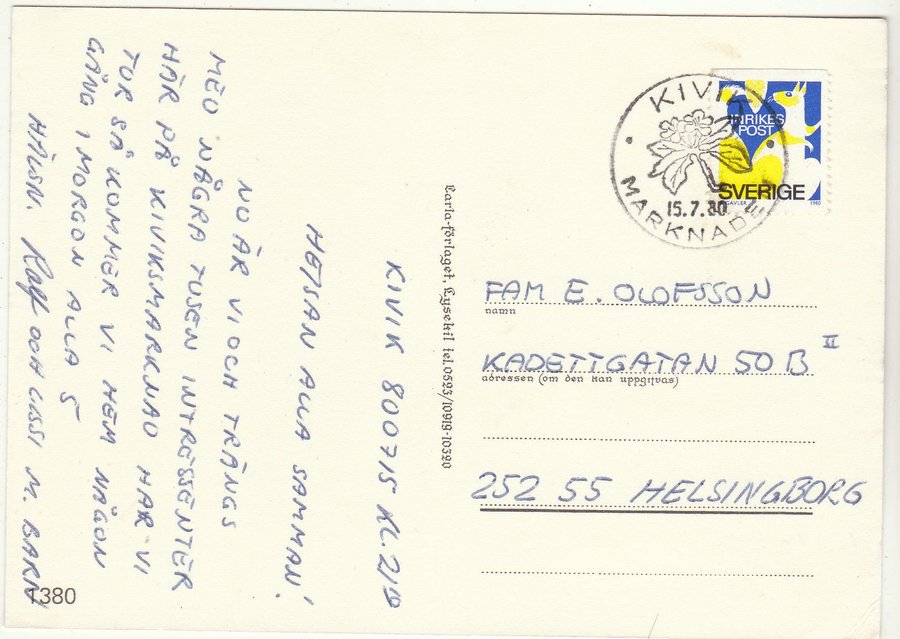 KIVIK 800715 KL. 21
HEJSAN ALLA SAMMAN!
NO ÄR VI OCH TRÄNGS
MED NÅGRA TUSEN INTRESSENTER
HÄR PÅ KIVIKSMARKNAD HAR VI
TUR SÅ KOMMER VI HEM NÅGON
GÅNG I MORGON ALLA 5
HÄLSN. Ralf OCH CISSI M. BARN
1380
Carla-förlaget, Lysekil tel. 0523/10919-10390
KIVIK
MARKNADEN
15.7.80
INRIKES
POST
SVERIGE
GAVLER 1980
FAM E. OLOFSSON
namn
KADETTGATAN 50 B II
adressen (om den kan uppgivas)
252 55 HELSINGBORG